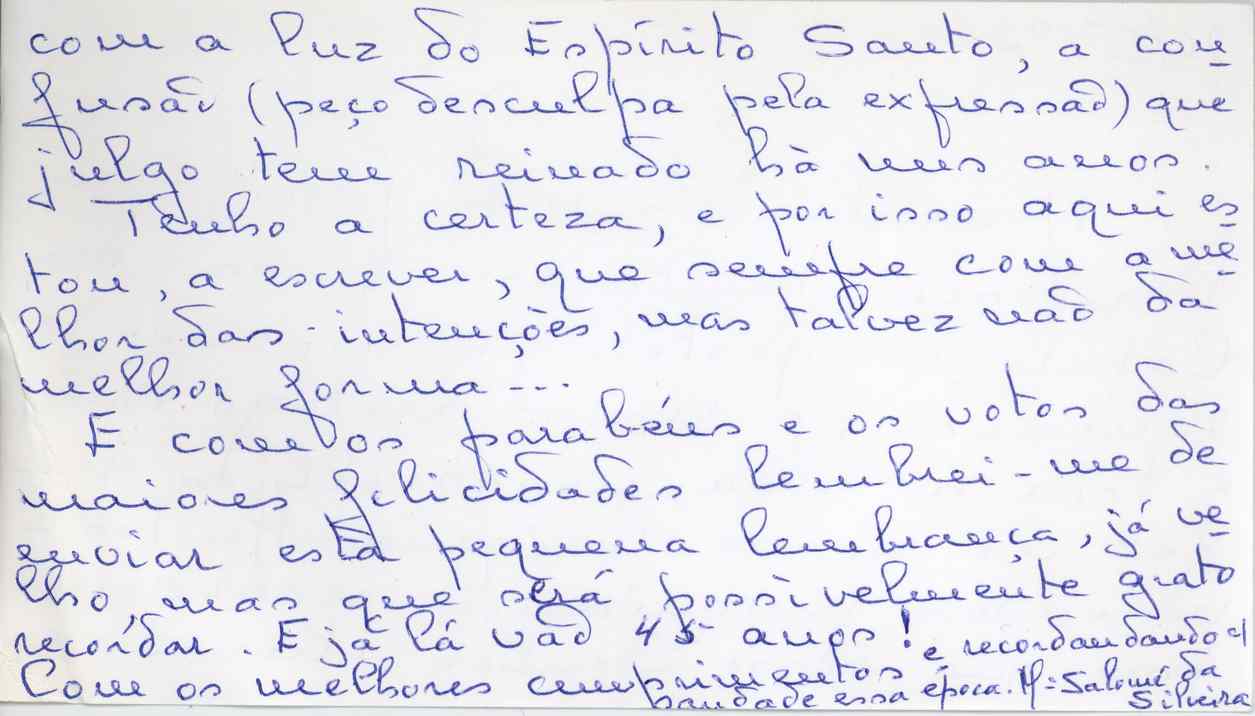 com a luz do Espírito Santo, a con
fusão (peço desculpa pela expressão) que
julgo tem reinado hà uns anos.
Tenho a certeza, e por isso aqui es
tou, a escrever, que sempre com a me
lhor das intenções, mas talvez não da
melhor forma...
E com os parabéns e os votos das
maiores felicidades lembrei-me de
enviar esta pequena lembrança, já ve
lho, mas que será possivelmente grato
recordar. E já lá vão 45 anos!
e recordandando c/
Com os melhores cumprimentos
saudade essa época. Mª Salomé da
Silveira